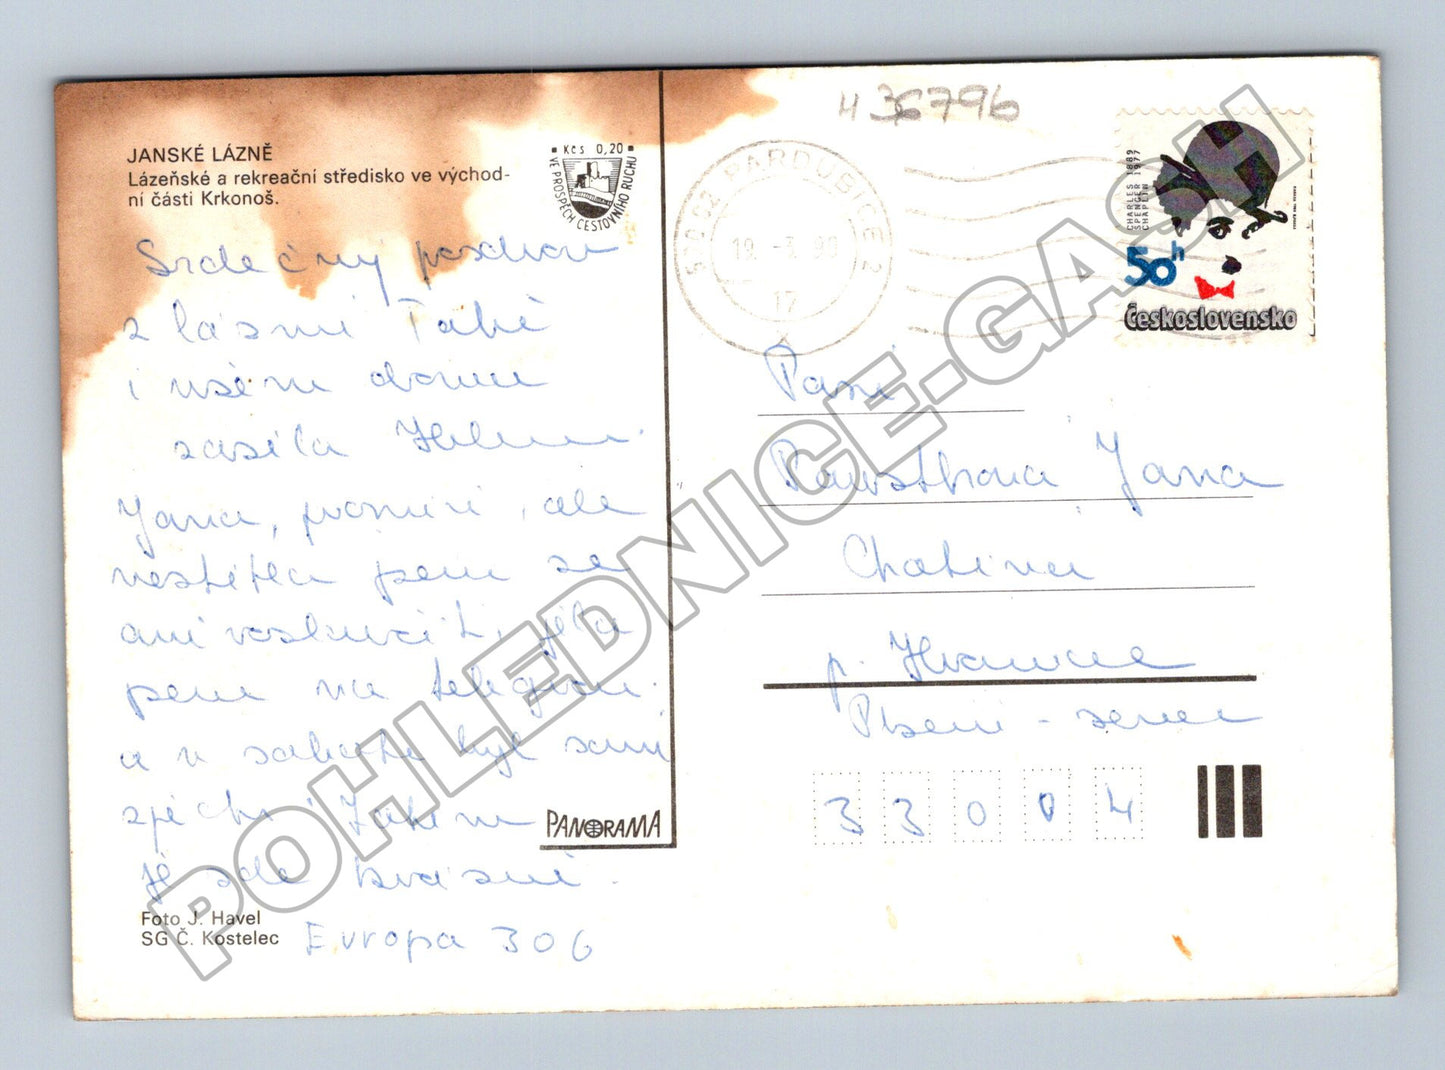 JANSKÉ LÁZNĚ
Lázeňské a rekreační středisko ve východ-
ní části Krkonoš.
Kčs 0,20
VE PROSPĚCH CESTOVNÍHO RUCHU
Srdečný pozdrav
z lázní Tobě
i všem doma
zasílá
Jana, promiň, ale
nestihla jsem se
ani rozloučit, jela
jsem na
a v sobotu byl
Jinak
je zde krásně.
Evropa 306
Foto J. Havel
SG Č. Kostelec
PANORAMA
H 36796
530 02 PARDUBICE 2
19. -3. 90
17
CHARLES 1889
SPENCER 1977
CHAPLIN
50h
Československo
Paní
Jana
Chotina
p. Hromnice
Plzeň - sever
33004
POHLEDNICE-GASH